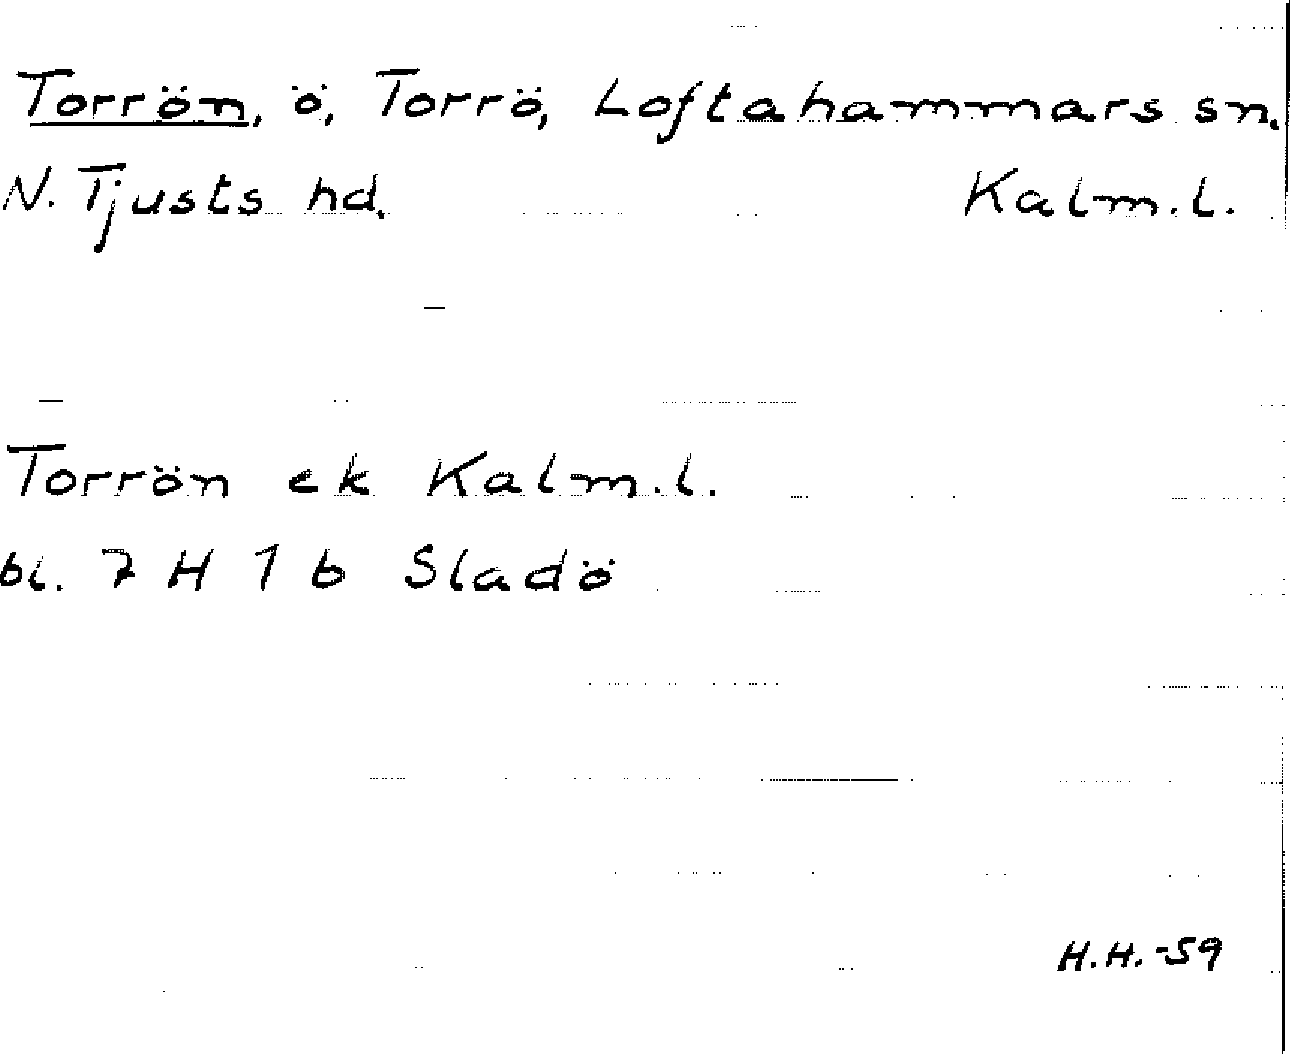 Torrön, ö, Torrö, Loftahammars sn.
N. Tjusts hd. Kalm.l.
Torrön ek Kalm.l.
bl. 7 H 1 b Sladö
H.H.-59